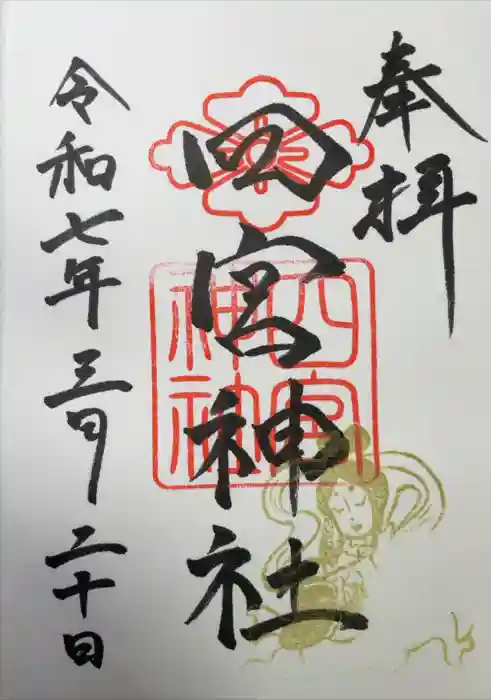 奉拝
四宮神社
四宮
神社
令和七年三月二十日